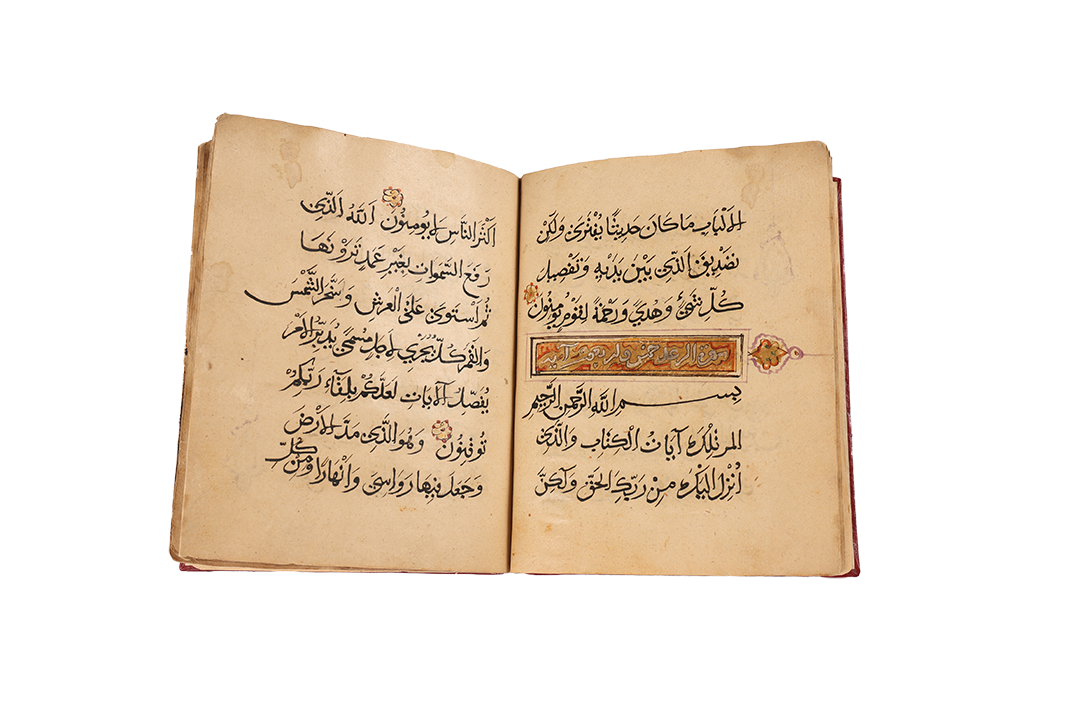 الَالْبَابِ مَا كَانَ حَدِيثًا يُفْتَرَى وَلَكِنْ
تَصْدِيقَ الَّذِي بَيْنَ يَدَيْهِ وَتَفْصِيلَ
كُلِّ شَيْءٍ وَهُدًى وَرَحْمَةً لِقَوْمٍ يُومِنُونَ
سورة الرعد خمس واربعون آية
بِسْمِ اللَّهِ الرَّحْمَنِ الرَّحِيمِ
المر تِلْكَ آيَاتُ الْكِتَابِ وَالَّذِي
أُنْزِلَ إِلَيْكَ مِنْ رَبِّكَ الْحَقُّ وَلَكِنَّ
أَكْثَرَ النَّاسِ لَا يُومِنُونَ اَللَّهُ الَّذِي
رَفَعَ السَّمَوَاتِ بِغَيْرِ عَمَدٍ تَرَوْنَهَا
ثُمَّ اسْتَوَى عَلَى الْعَرْشِ وَسَخَّرَ الشَّمْسَ
وَالْقَمَرَ كُلٌّ يَجْرِي لِأَجَلٍ مُسَمًّى يُدَبِّرُ الْأَمْرَ
يُفَصِّلُ الْآيَاتِ لَعَلَّكُمْ بِلِقَآءِ رَبِّكُمْ
تُوقِنُونَ وَهُوَ الَّذِي مَدَّ الْأَرْضَ
وَجَعَلَ فِيهَا رَوَاسِيَ وَأَنْهَارًا وَمِنْ كُلِّ